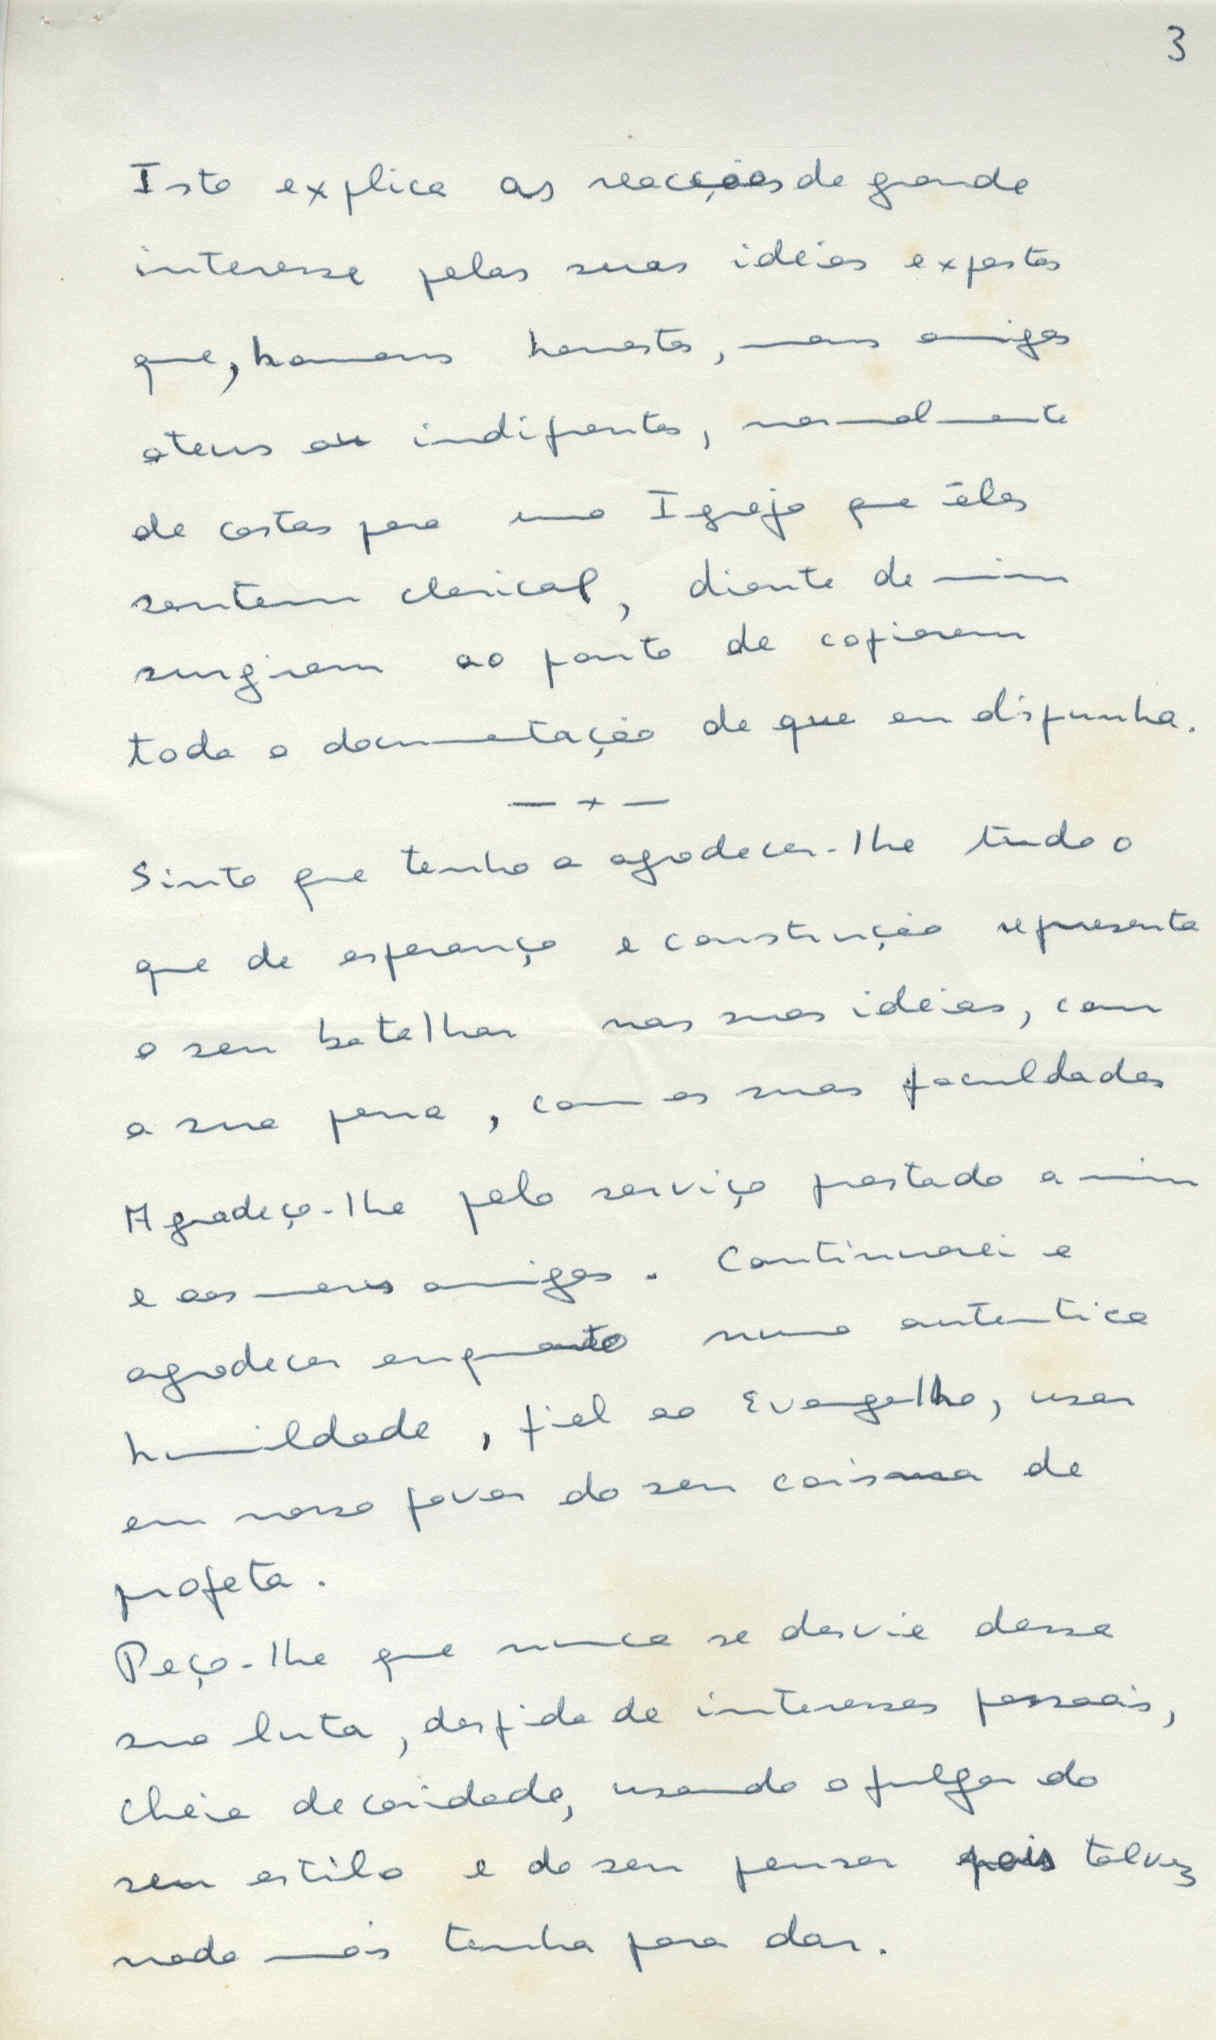 3
Isto explica as reacções de grande
interesse pelas suas idéias expostas
que, homens honestos, meus amigos
ateus ou indiferentes, normalmente
de costas para uma Igreja que êles
sentem clerical, diante de mim
surgiram ao ponto de copiarem
toda a documentação de que eu dispunha.
— + —
Sinto que tenho a agradecer-lhe tudo o
que de esperança e construção representa
o seu batalhar nas suas idéias, com
a sua pena, com as suas faculdades
Agradeço-lhe pelo serviço prestado a mim
e aos meus amigos. Continuarei a
agradecer enquanto numa autentica
humildade, fiel ao Evangelho, usar
em nosso favor do seu carisma de
profeta.
Peço-lhe que nunca se desvie dessa
sua luta, despida de interesses pessoais,
cheia de caridade, usando o fulgor do
seu estilo e do seu pensar pois talvez
nada mais tenha para dar.